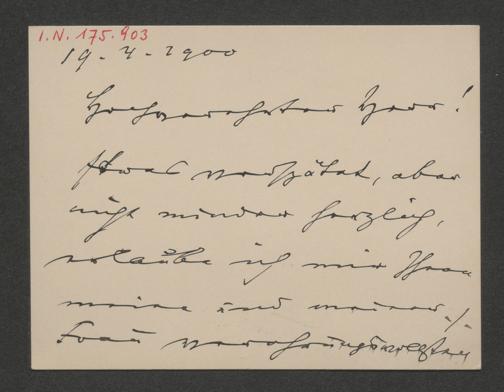 I.N. 175.903
19. 4. 1900
Hochverehrter Herr!
Etwas verspätet, aber
nicht minder herzlich,
erlaube ich mir Ihnen
meine und meiner ./.
Frau verehrungsvollsten